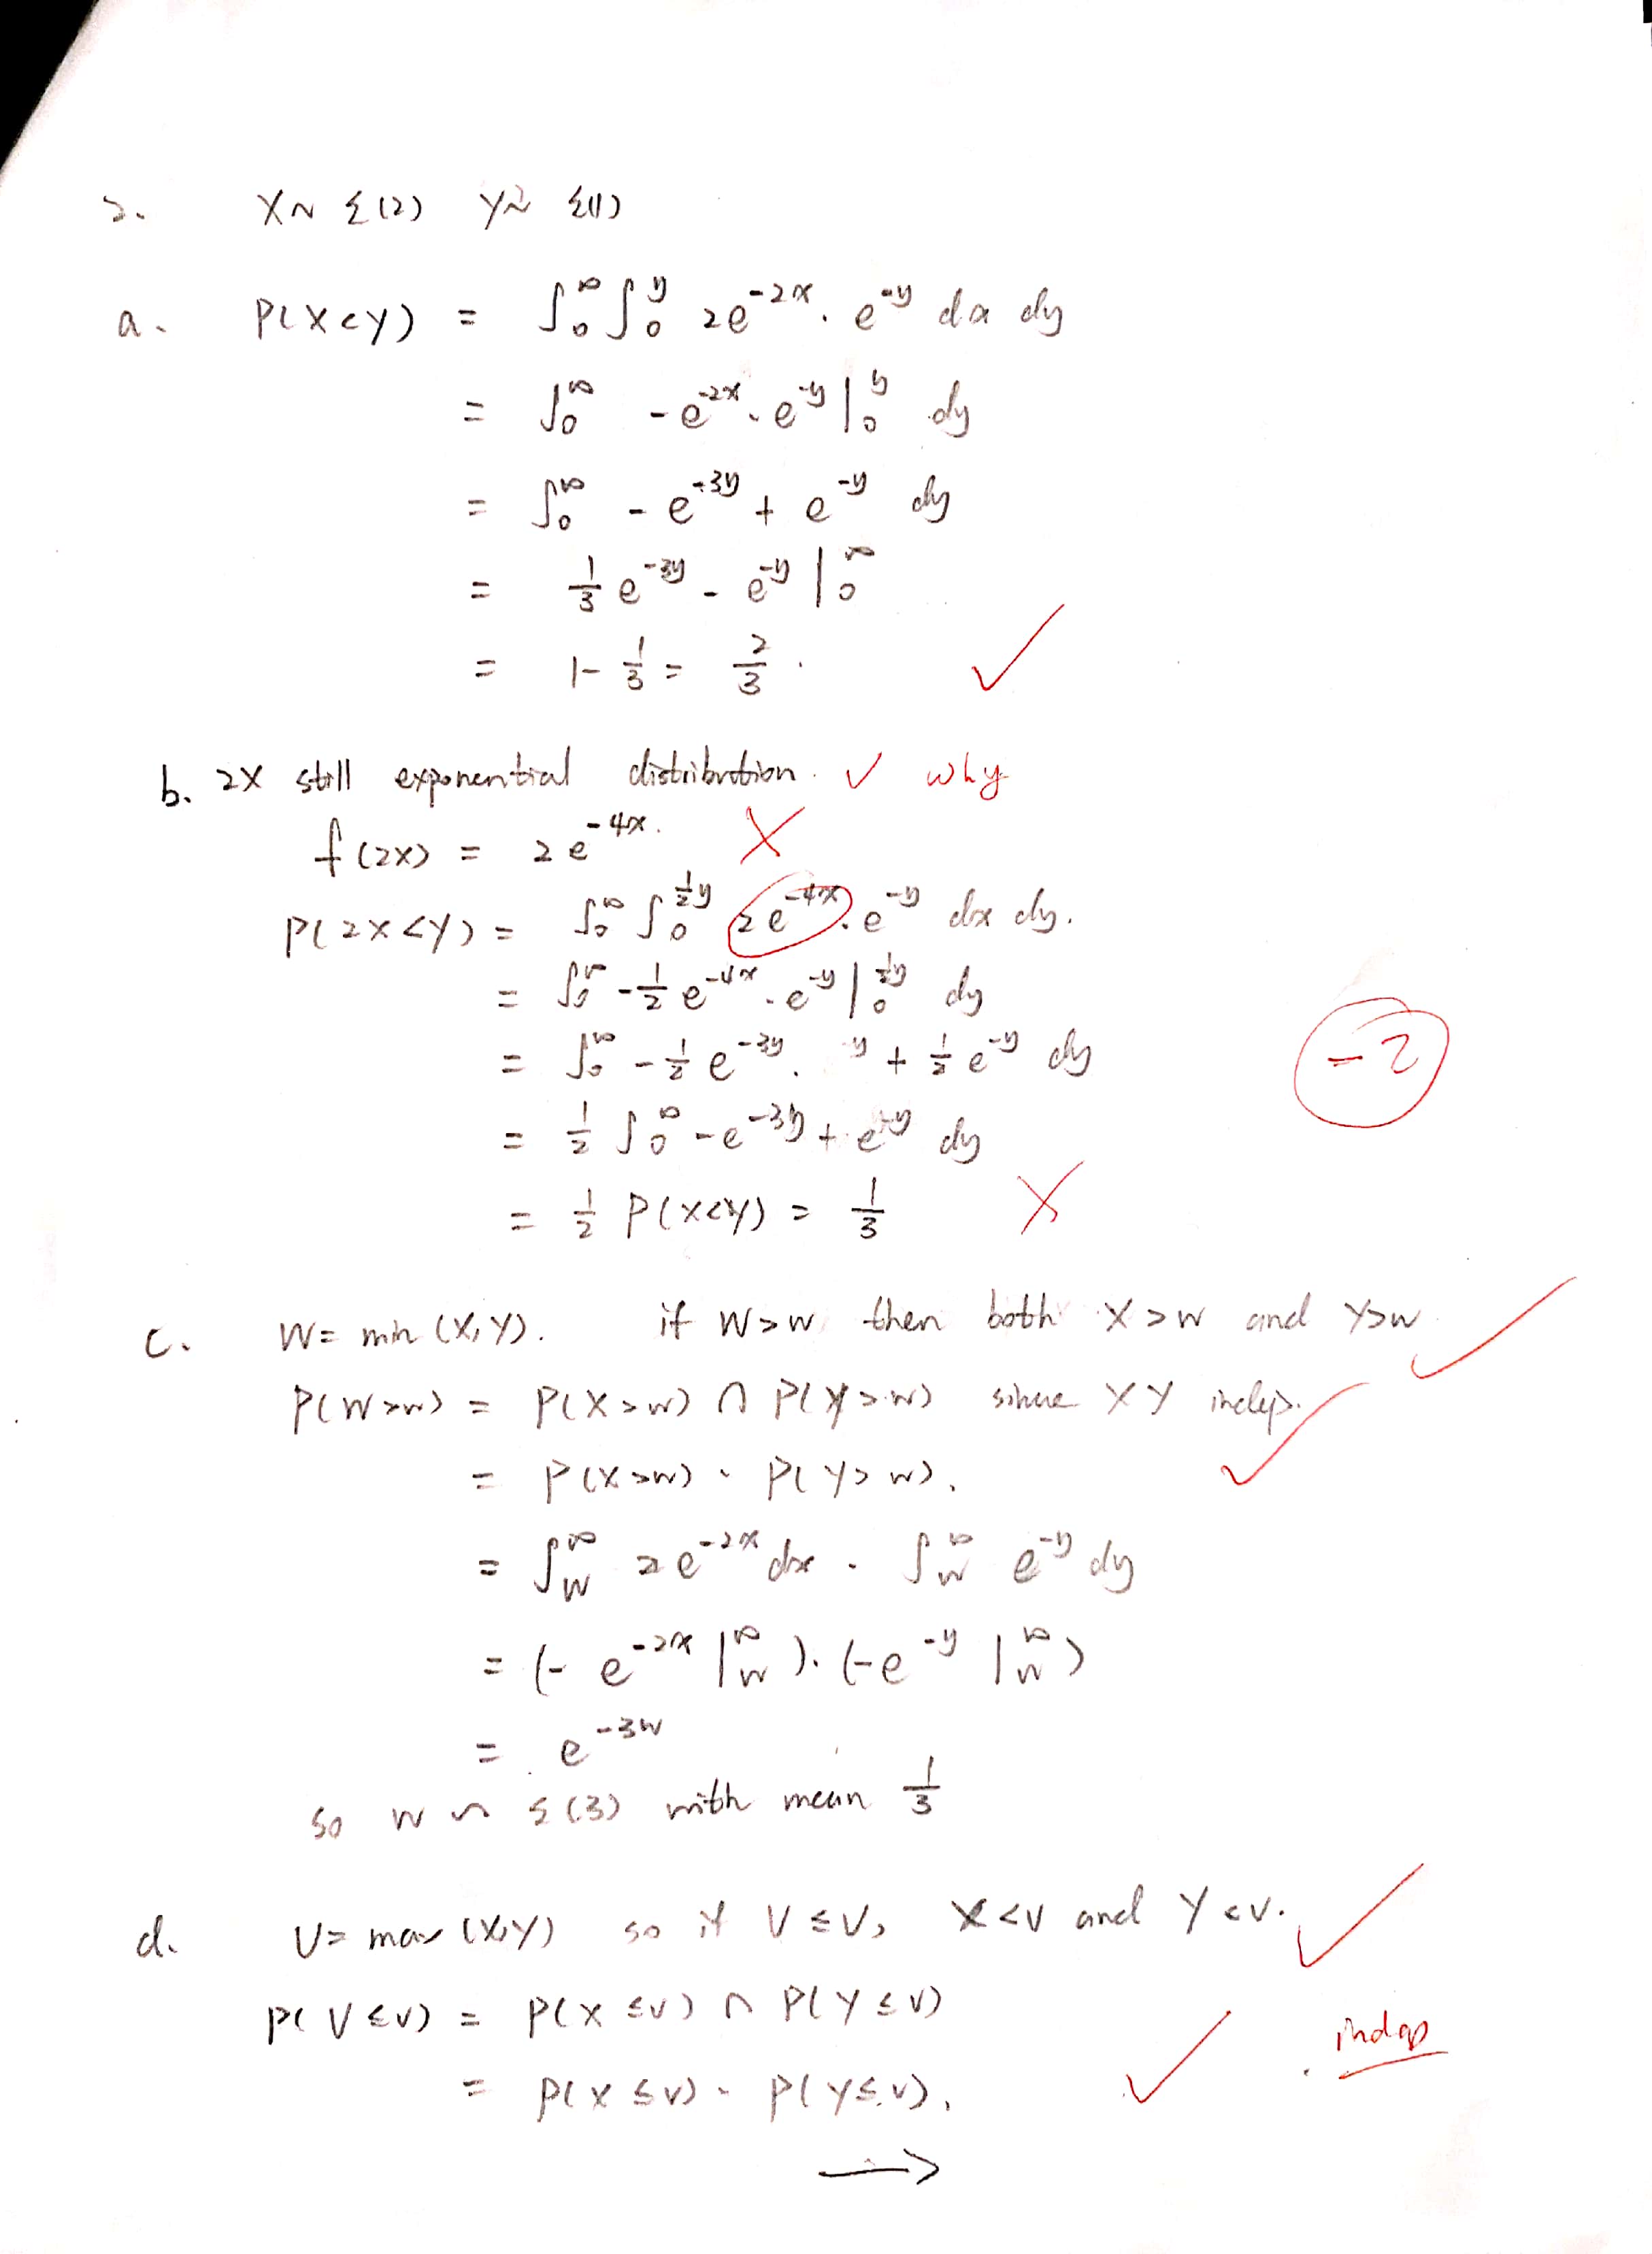 2. X ~ ℰ(2) Y ~ ℰ(1)
a. P(X<Y) = ∫₀^∞ ∫₀^y 2e^{-2x} · e^{-y} dx dy
= ∫₀^∞ -e^{-2x} · e^{-y} |₀^y dy
= ∫₀^∞ -e^{-3y} + e^{-y} dy
= 1/3 e^{-3y} - e^{-y} |₀^∞
= 1 - 1/3 = 2/3. ✓
b. 2X still exponential distribution. ✓ why
f(2x) = 2e^{-4x}. X
P(2X<Y) = ∫₀^∞ ∫₀^{1/2 y} 2e^{-4x} · e^{-y} dx dy.
= ∫₀^∞ -1/2 e^{-4x} · e^{-y} |₀^{1/2 y} dy
= ∫₀^∞ -1/2 e^{-3y} · y + 1/2 e^{-y} dy
-2
= 1/2 ∫₀^∞ -e^{-3y} + e^{-y} dy
= 1/2 P(X<Y) = 1/3 X
c. W = min (X,Y). if W>w then both X>w and Y>w ✓
P(W>w) = P(X>w) ∩ P(Y>w) since X Y indep. ✓
= P(X>w) · P(Y>w).
= ∫_w^∞ 2e^{-2x} dx · ∫_w^∞ e^{-y} dy
= (-e^{-2x} |_w^∞) · (-e^{-y} |_w^∞)
= e^{-3w}
so W ~ ℰ(3) with mean 1/3
d. V = max (X,Y) so if V ≤ v, X<v and Y<v. ✓
P(V≤v) = P(X≤v) ∩ P(Y≤v)
indep
= P(X≤v) · P(Y≤v). ✓
→